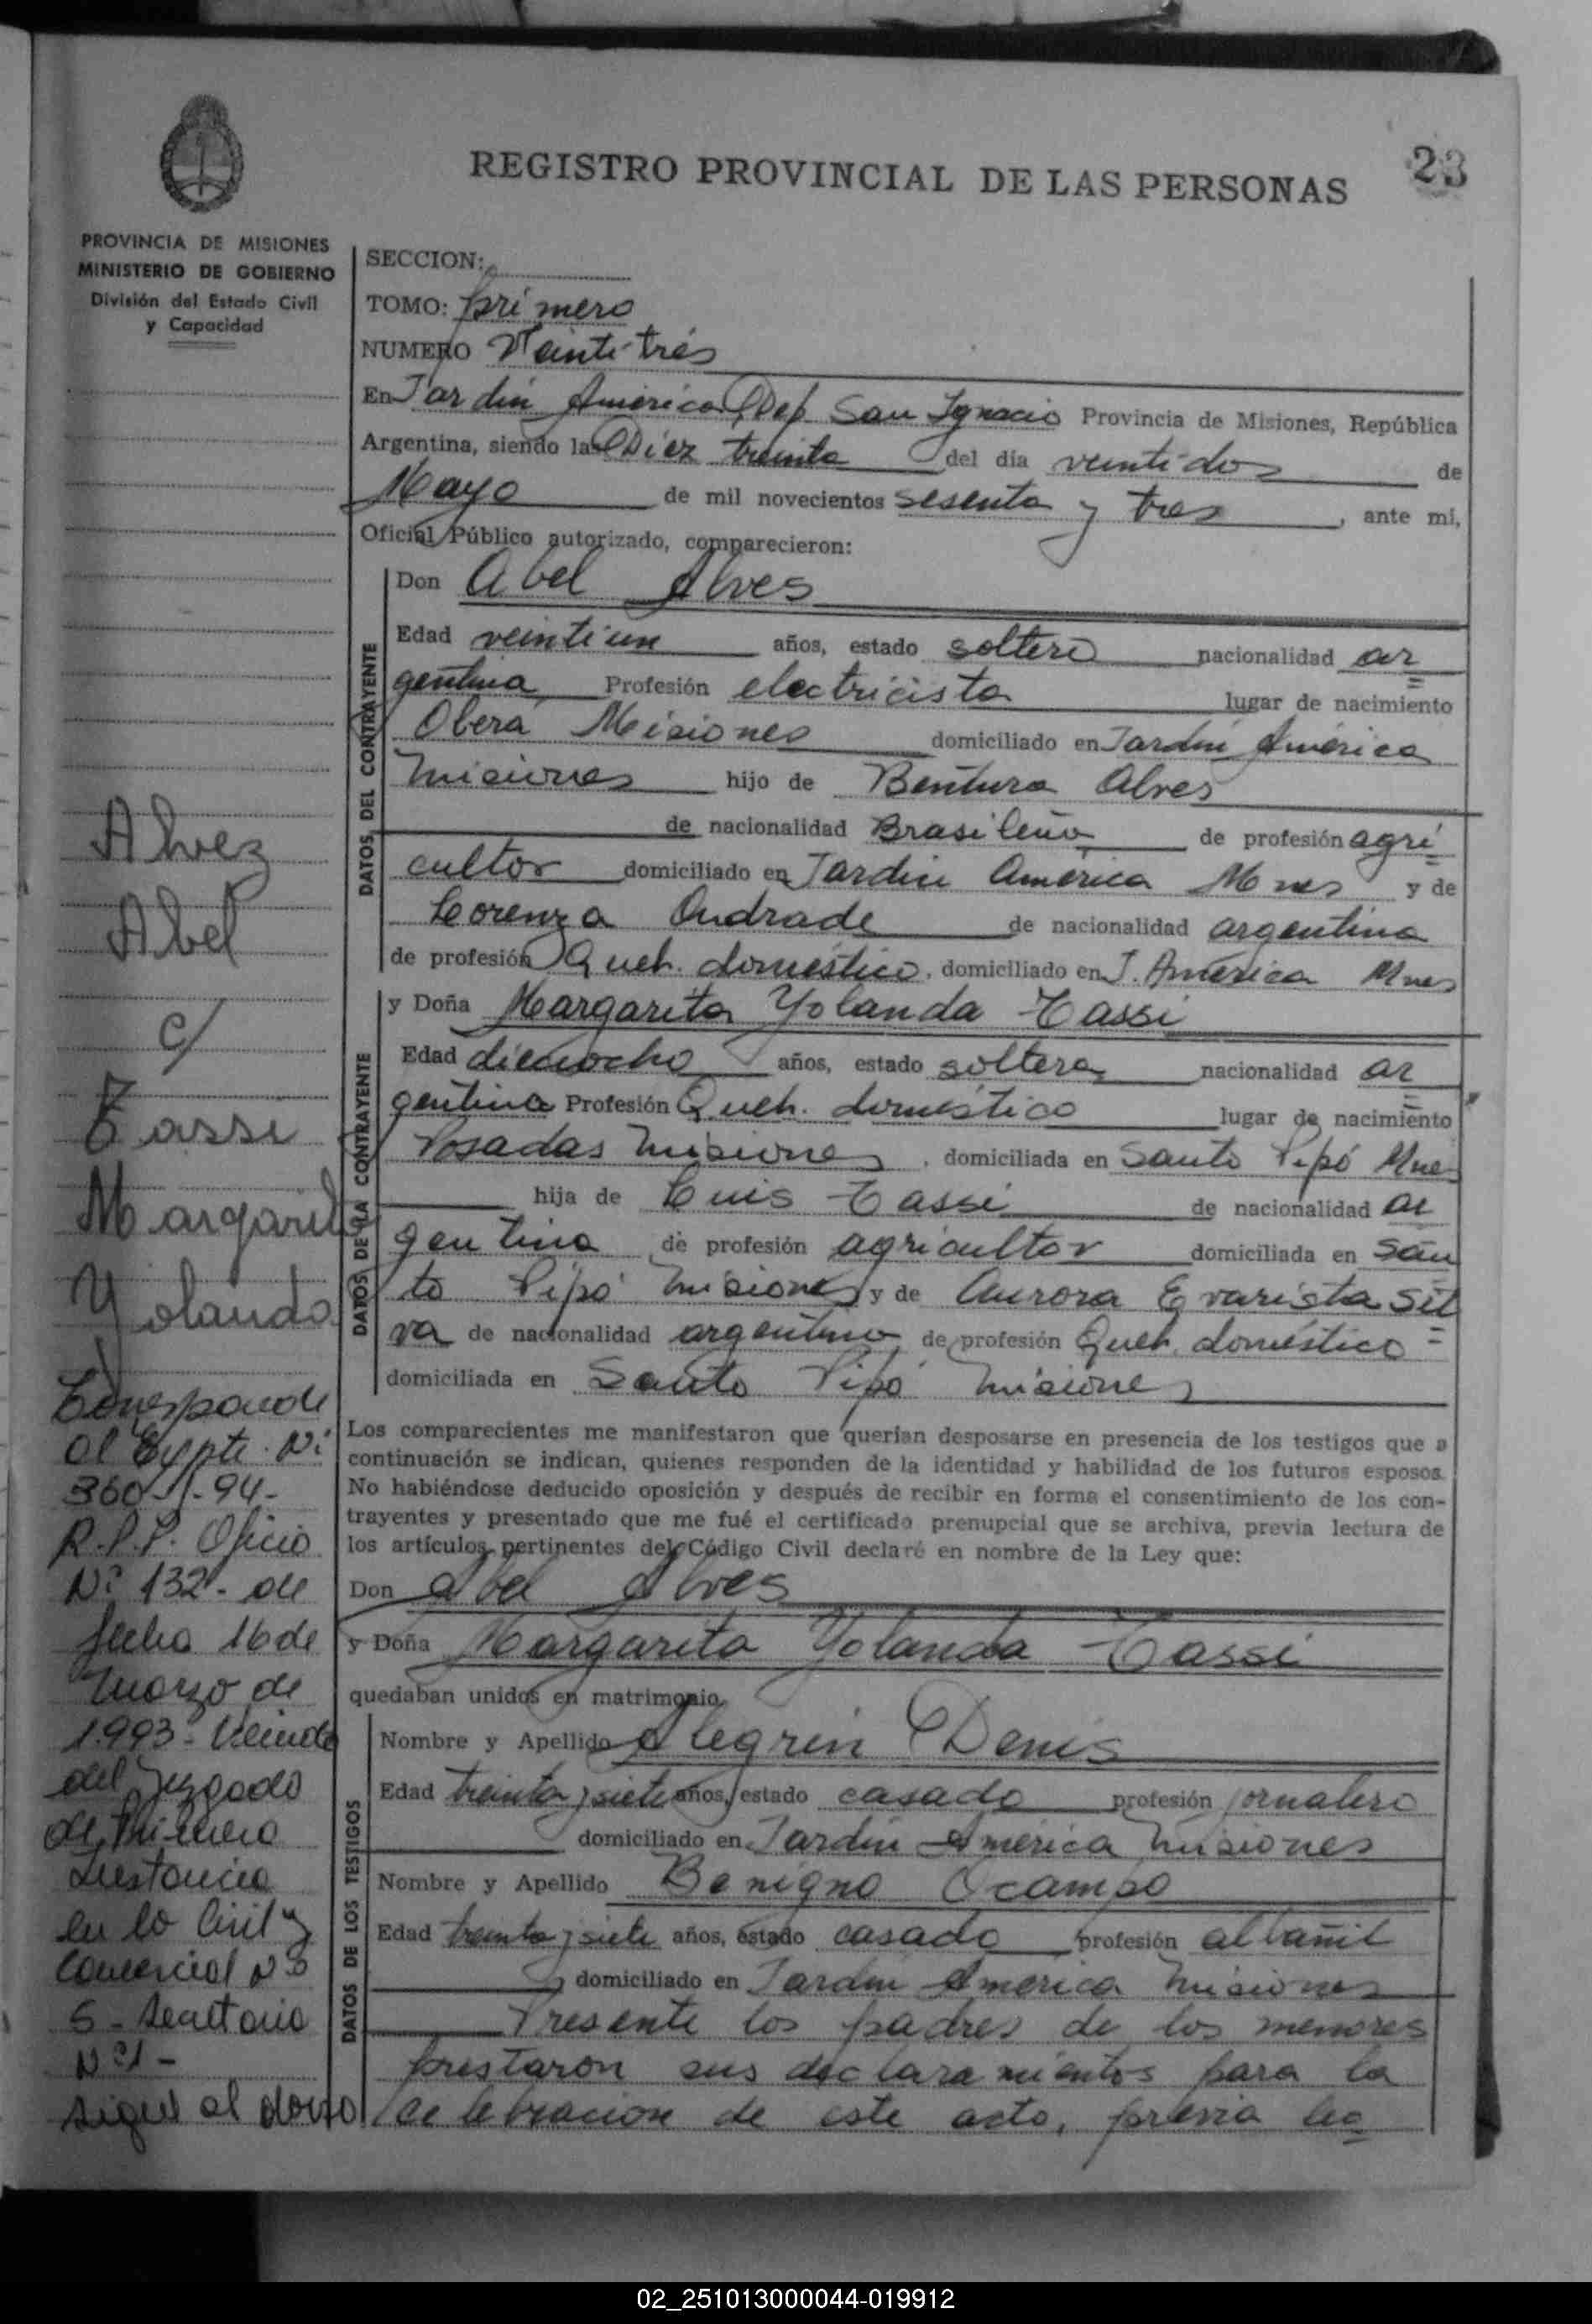 REGISTRO PROVINCIAL DE LAS PERSONAS
23
PROVINCIA DE MISIONES
MINISTERIO DE GOBIERNO
División del Estado Civil
y Capacidad
SECCION:
TOMO: primero
NUMERO Veinti-trés
En Jardín América, Dep. San Ignacio Provincia de Misiones, República
Argentina, siendo las Diez treinta del día veintidos de
Mayo de mil novecientos sesenta y tres, ante mi,
Oficial Público autorizado, comparecieron:
DATOS DEL CONTRAYENTE
Don Abel Alves
Edad veintiun años, estado soltero nacionalidad ar
gentina Profesión electricista lugar de nacimiento
Oberá Misiones domiciliado en Jardín América
Misiones hijo de Bentura Alves
de nacionalidad Brasileña de profesión agri
cultor domiciliado en Jardín América Mnes y de
Lorenza Andrade de nacionalidad argentina
de profesión Queh. doméstico, domiciliado en J. América Mnes
DATOS DE LA CONTRAYENTE
y Doña Margarita Yolanda Tassi
Edad dieciocho años, estado soltera nacionalidad ar
gentina Profesión Queh. doméstico lugar de nacimiento
Posadas Misiones, domiciliada en Santo Pipó Mnes
hija de Luis Tassi de nacionalidad ar
gentina de profesión agricultor domiciliada en San
to Pipó Misiones y de Aurora Evarista Sil
va de nacionalidad argentina de profesión Queh. doméstico =
domiciliada en Santo Pipó Misiones
Los comparecientes me manifestaron que querían desposarse en presencia de los testigos que a
continuación se indican, quienes responden de la identidad y habilidad de los futuros esposos.
No habiéndose deducido oposición y después de recibir en forma el consentimiento de los con-
trayentes y presentado que me fué el certificado prenupcial que se archiva, previa lectura de
los artículos pertinentes del Código Civil declaré en nombre de la Ley que:
Don Abel Alves
y Doña Margarita Yolanda Tassi
quedaban unidos en matrimonio
DATOS DE LOS TESTIGOS
Nombre y Apellido Alegrin Denis
Edad treinta y siete años, estado casado profesión jornalero
domiciliado en Jardín América Misiones
Nombre y Apellido Benigno Ocampo
Edad treinta y siete años, estado casado profesión albañil
domiciliado en Jardín América Misiones
Presente los padres de los menores
prestaron sus declaramientos para la
celebración de este acto, previa lec
Alvez
Abel
c/
Tassi
Margarita
Yolanda
Corresponde
al Expte. Nº
360 -94-
R.P.P. Oficio
Nº 132- de
fecha 16 de
Marzo de
1.993-
del Juzgado
de Primera
Instancia
en lo Civil y
Comercial Nº
5- Secretaria
Nº 1-
sigue al dorso
02_251013000044-019912